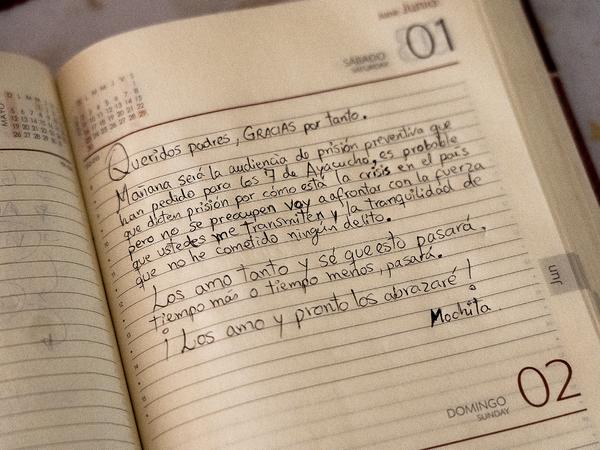 June Junio
01
SÁBADO
SATURDAY
MAYO
Queridos padres, GRACIAS por tanto.
Mañana será la audiencia de prisión preventiva que
han pedido para los 7 de Ayacucho, es probable
que dicten prisión por cómo está la crisis en el país
pero no se preocupen voy a afrontar con la fuerza
que ustedes me transmiten y la tranquilidad de
que no he cometido ningún delito.
Los amo tanto y sé que esto pasará,
tiempo más o tiempo menos, pasará.
¡Los amo y pronto los abrazaré!
Mochita.
Jun
DOMINGO
SUNDAY
02